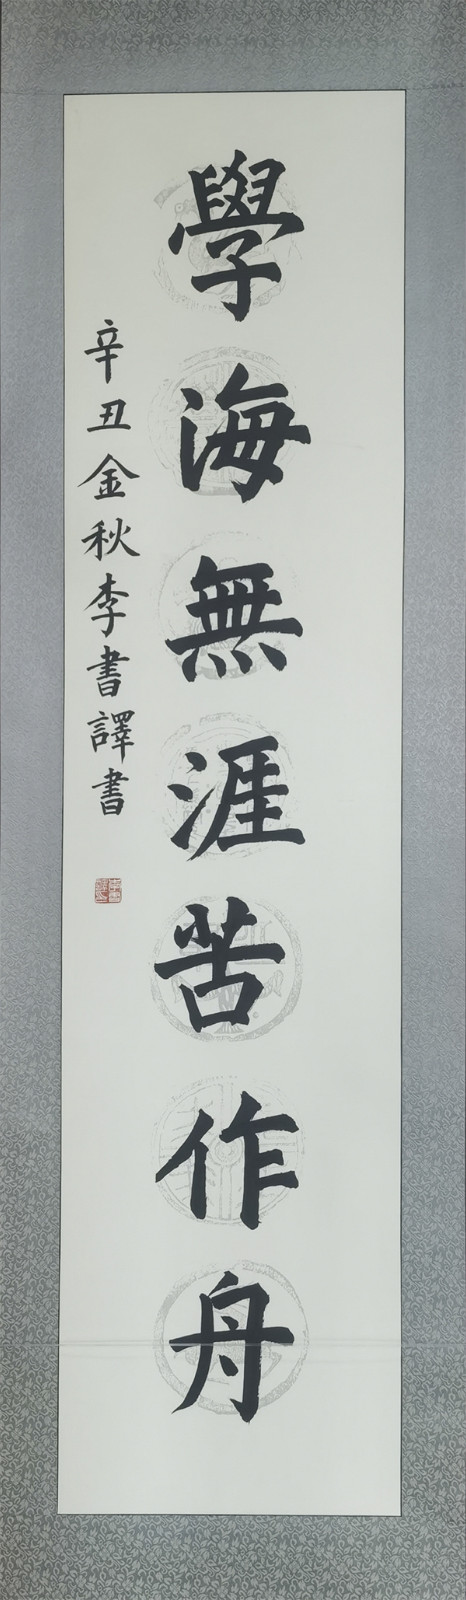 學海無涯苦作舟
辛丑金秋李書譯書